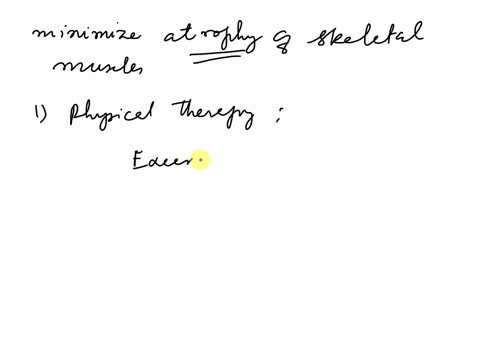 minimize atrophy of skeletal
muscles
1) Physical therapy :
Exer